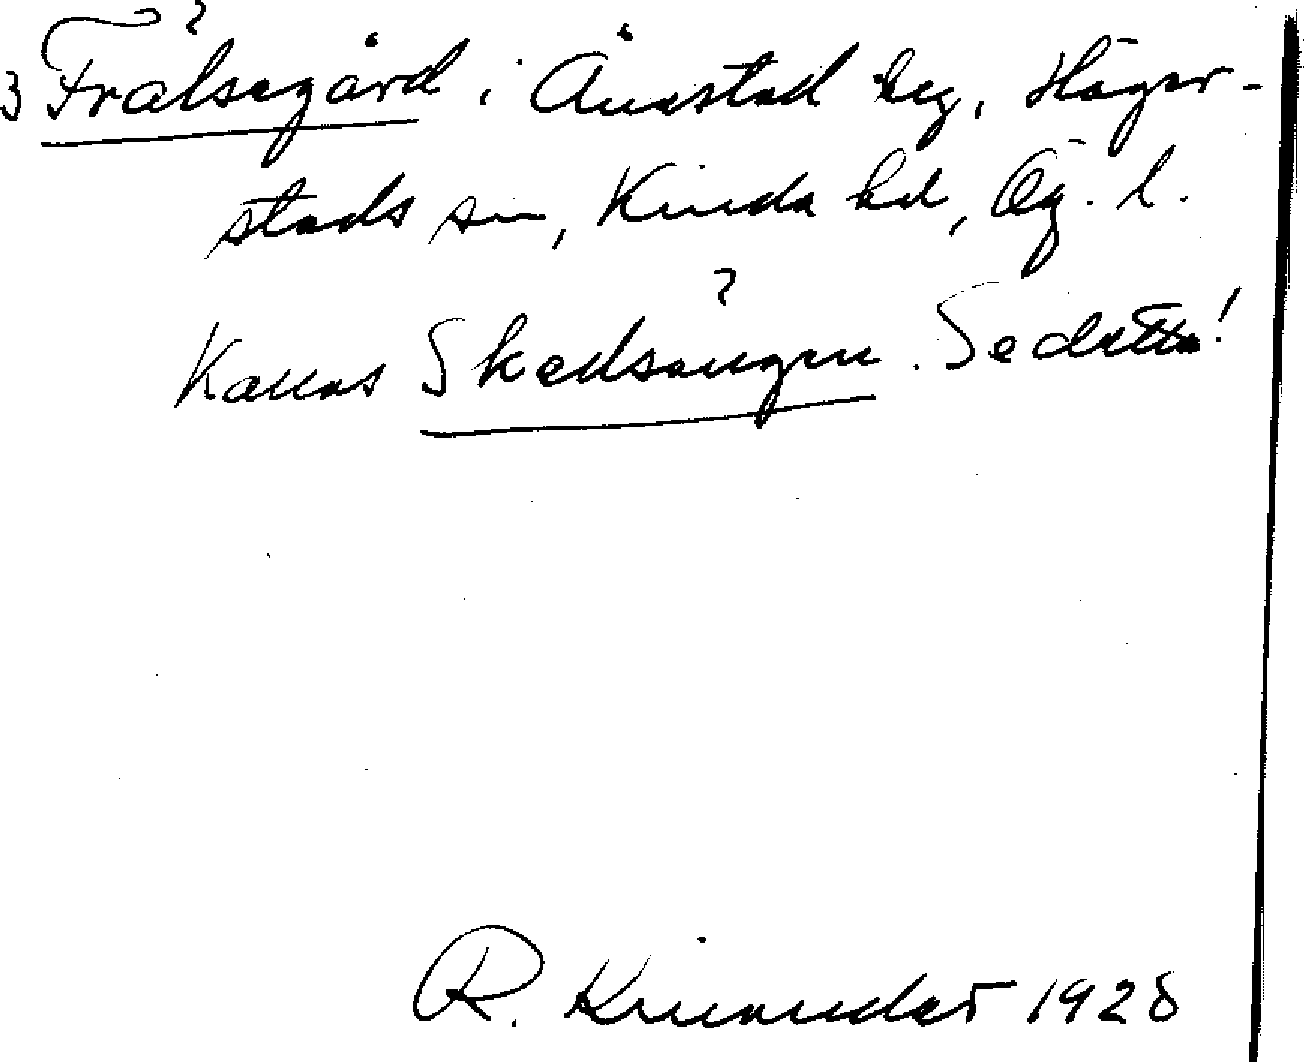 3 Frälsegård i Ånestad by, Häger-
stads sn, Kinda hd, Ög. l.
Kallas Skedsängen. Se detta!
R. Kinander 1928